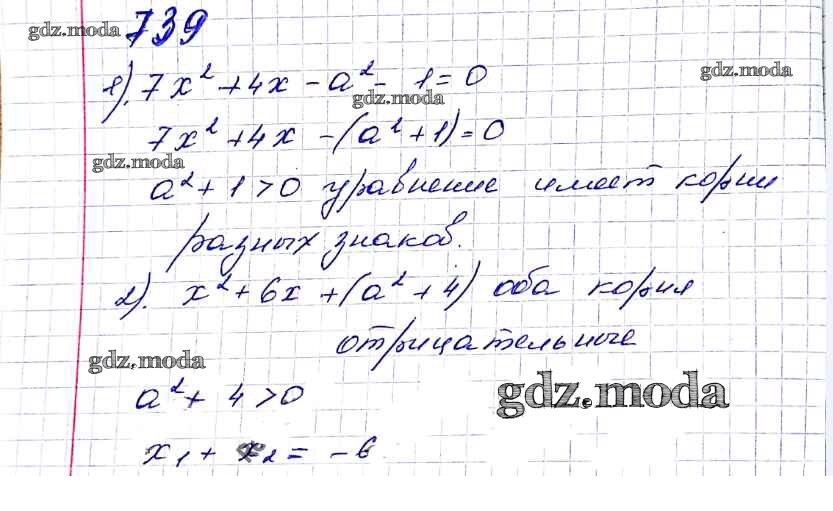 gdz.moda 739
1). 7x² + 4x - a² - 1 = 0 gdz.moda
gdz.moda
7x² + 4x - (a² + 1) = 0
gdz.moda
a² + 1 > 0 уравнение имеет корни
разных знаков.
2). x² + 6x + (a² + 4) оба корня
отрицательные
gdz.moda
a² + 4 > 0
gdz.moda
x₁ + x₂ = -6